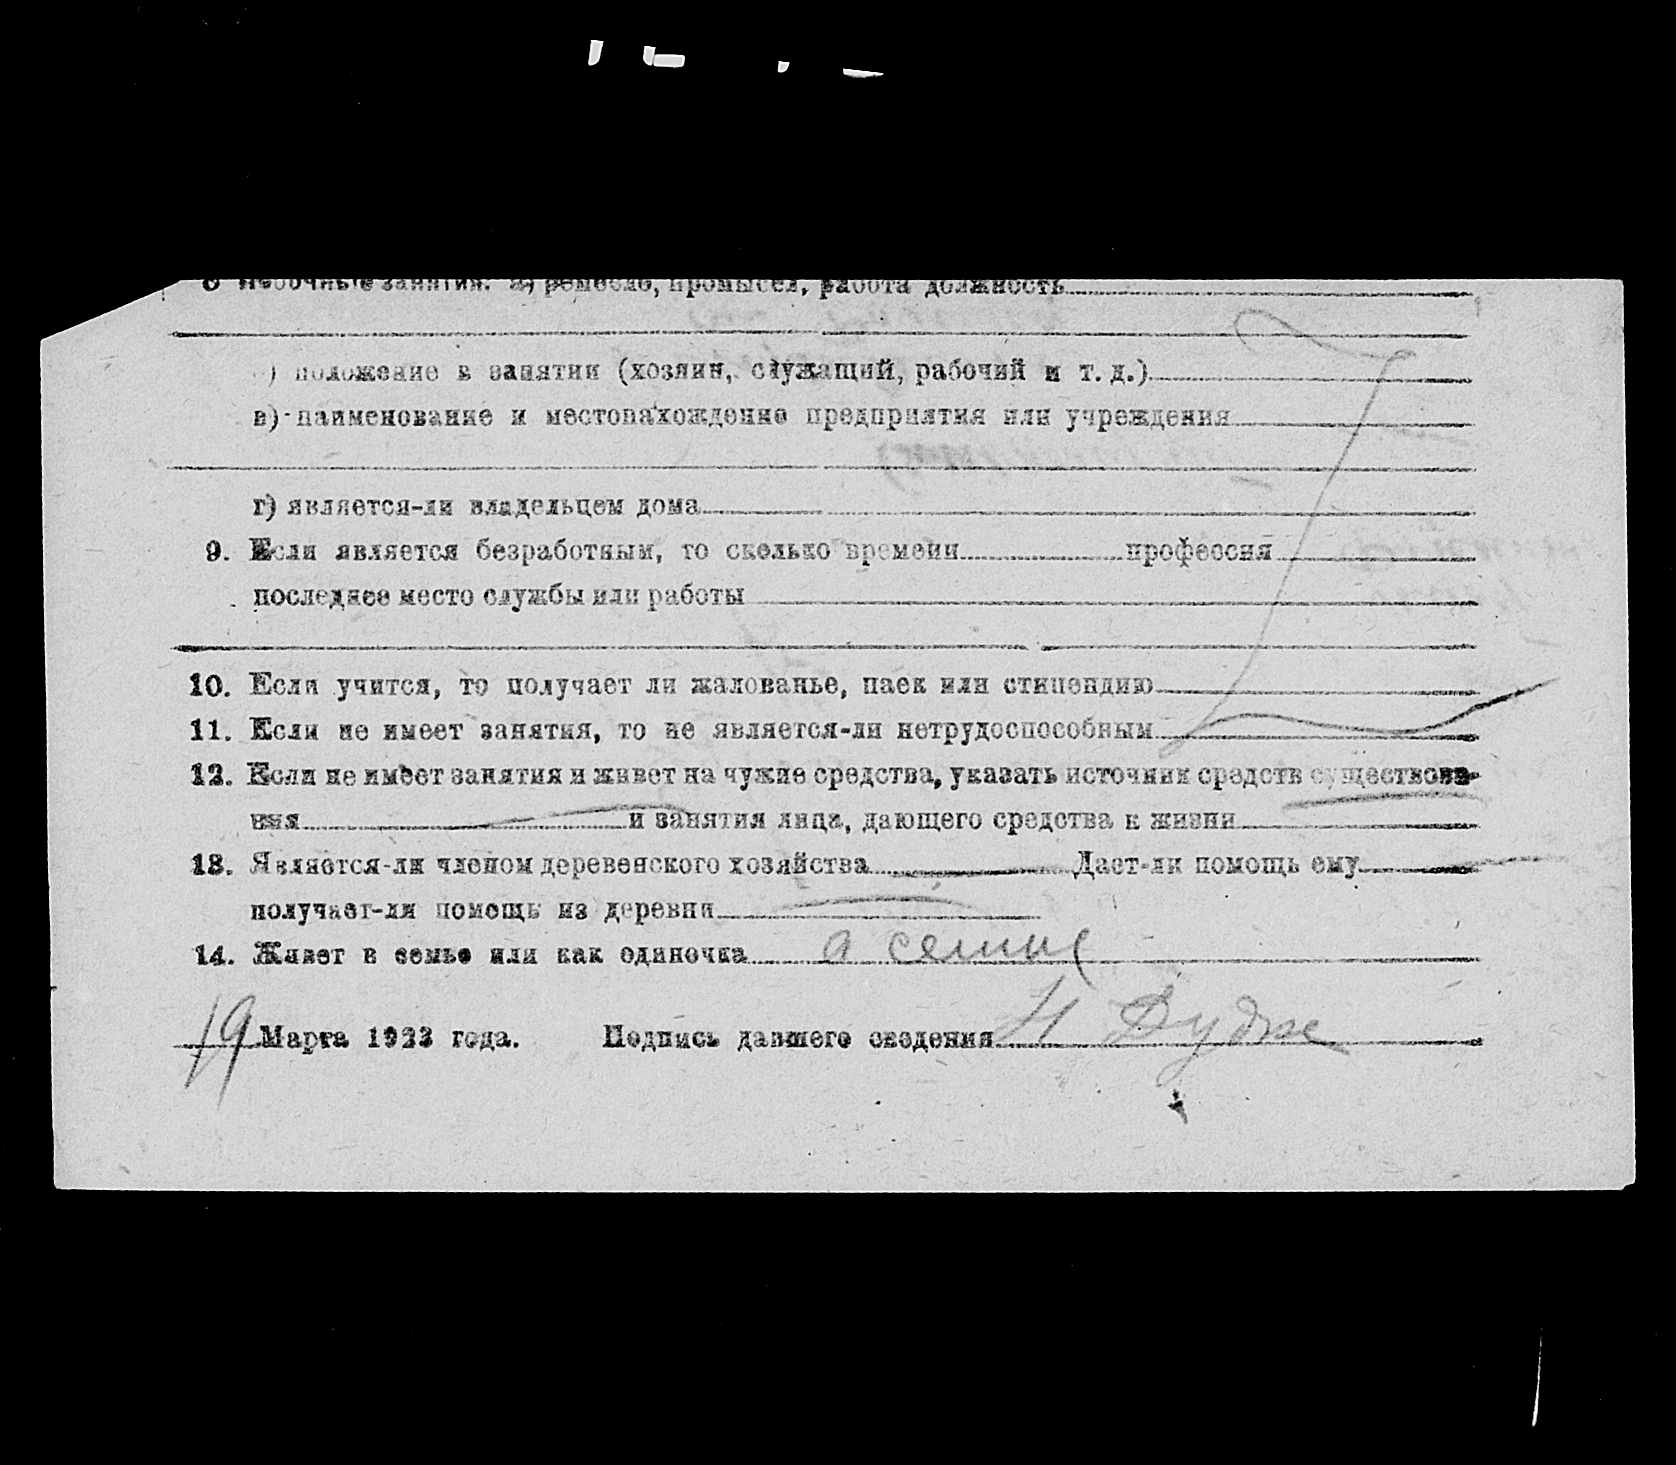 8 Побочные занятия: а) ремесло, промысел, работа должность
) положение в занятии (хозяин, служащий, рабочий и т. д.)
в) наименование и местонахождение предприятия или учреждения
г) является-ли владельцем дома
9. Если является безработным, то сколько времени профессия
последнее место службы или работы
10. Если учится, то получает ли жалованье, паек или стипендию
11. Если не имеет занятия, то не является-ли нетрудоспособным
12. Если не имеет занятия и живет на чужие средства, указать источник средств существова-
ния и занятия лица, дающего средства к жизни
13. Является-ли членом деревенского хозяйства Дает-ли помощь ему
получает-ли помощь из деревни
14. Живет в семье или как одиночка в семье
19 Марта 1923 года. Подпись давшего сведения